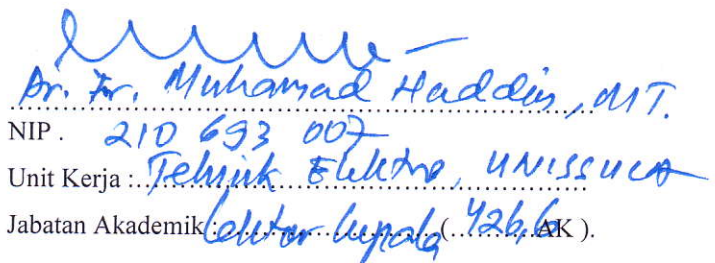 Dr. Ir. Muhamad Haddin, MT.
NIP . 210 693 007
Unit Kerja : Teknik Elektro, UNISSULA
Jabatan Akademik : Lektor Kepala ( 426,6 AK ).